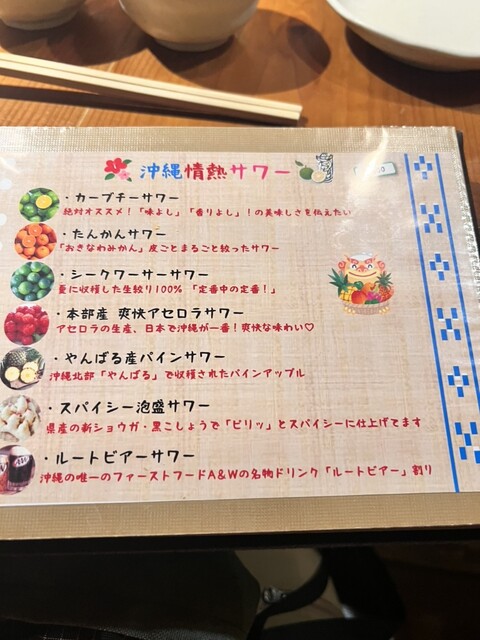 沖縄情熱サワー
・カーブチーサワー
絶対オススメ！「味よし」「香りよし」！の美味しさを伝えたい
・たんかんサワー
「おきなわみかん」皮ごとまるごと絞ったサワー
・シークワーサーサワー
夏に収穫した生絞り100％「定番中の定番！」
・本部産 爽快アセロラサワー
アセロラの生産、日本で沖縄が一番！爽快な味わい♡
・やんばる産パインサワー
沖縄北部「やんばる」で収穫されたパインアップル
・スパイシー泡盛サワー
県産の新ショウガ・黒こしょうで「ピリッ」とスパイシーに仕上げてます
・ルートビアーサワー
沖縄の唯一のファーストフードA&Wの名物ドリンク「ルートビアー」割り